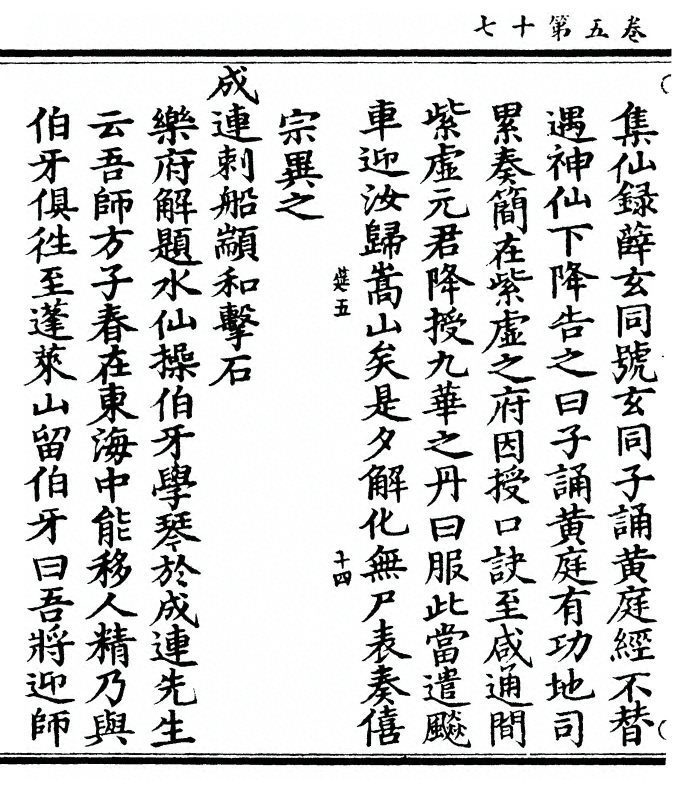 卷五第十七
集仙録薛玄同號玄同子誦黃庭經不替
遇神仙下降告之曰子誦黃庭有功地司
累奏簡在紫虛之府因授口訣至咸通間
紫虛元君降授九華之丹曰服此當遣飈
車迎汝歸嵩山矣是夕解化無尸表奏僖
五 十四
宗異之
成連刺船顓和擊石
樂府解題水仙操伯牙學琴於成連先生
云吾師方子春在東海中能移人精乃與
伯牙俱徃至蓬萊山留伯牙曰吾將迎師